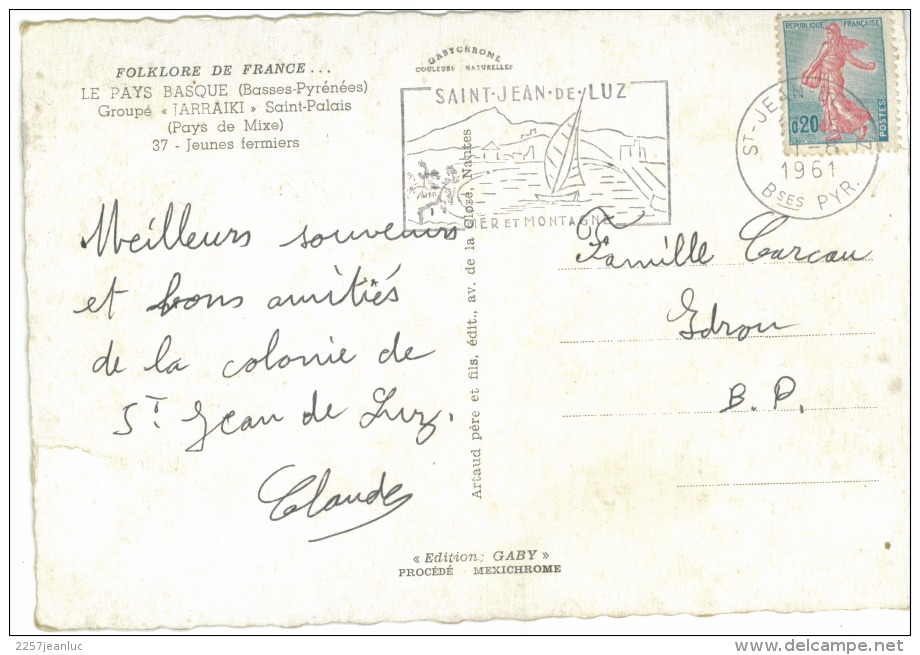 FOLKLORE DE FRANCE...
LE PAYS BASQUE (Basses-Pyrénées)
Groupé « JARRAIKI » Saint-Palais
(Pays de Mixe)
37 - Jeunes fermiers
GABYCHROME
COULEURS NATURELLES
SAINT·JEAN·DE·LUZ
MER ET MONTAGNE
ST-JEAN
1961
BSES PYR.
REPUBLIQUE FRANÇAISE
0,20
POSTES
Meilleurs souvenirs
et bons amitiés
de la colonie de
St. Jean de Luz.
Claude
Artaud père et fils, édit., av. de la Close, Nantes
Famille Carcau
Idron
B. P.
« Edition; GABY »
PROCÉDÉ MEXICHROME
2257jeanluc
www.delcampe.net